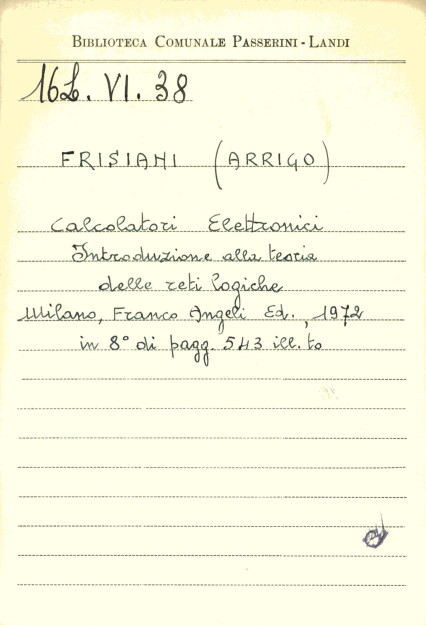 BIBLIOTECA COMUNALE PASSERINI-LANDI
16L. VI. 38
FRISIANI (ARRIGO)
Calcolatori Elettronici
Introduzione alla teoria
delle reti logiche
Milano, Franco Angeli Ed., 1972
in 8° di pagg. 543 ill.to